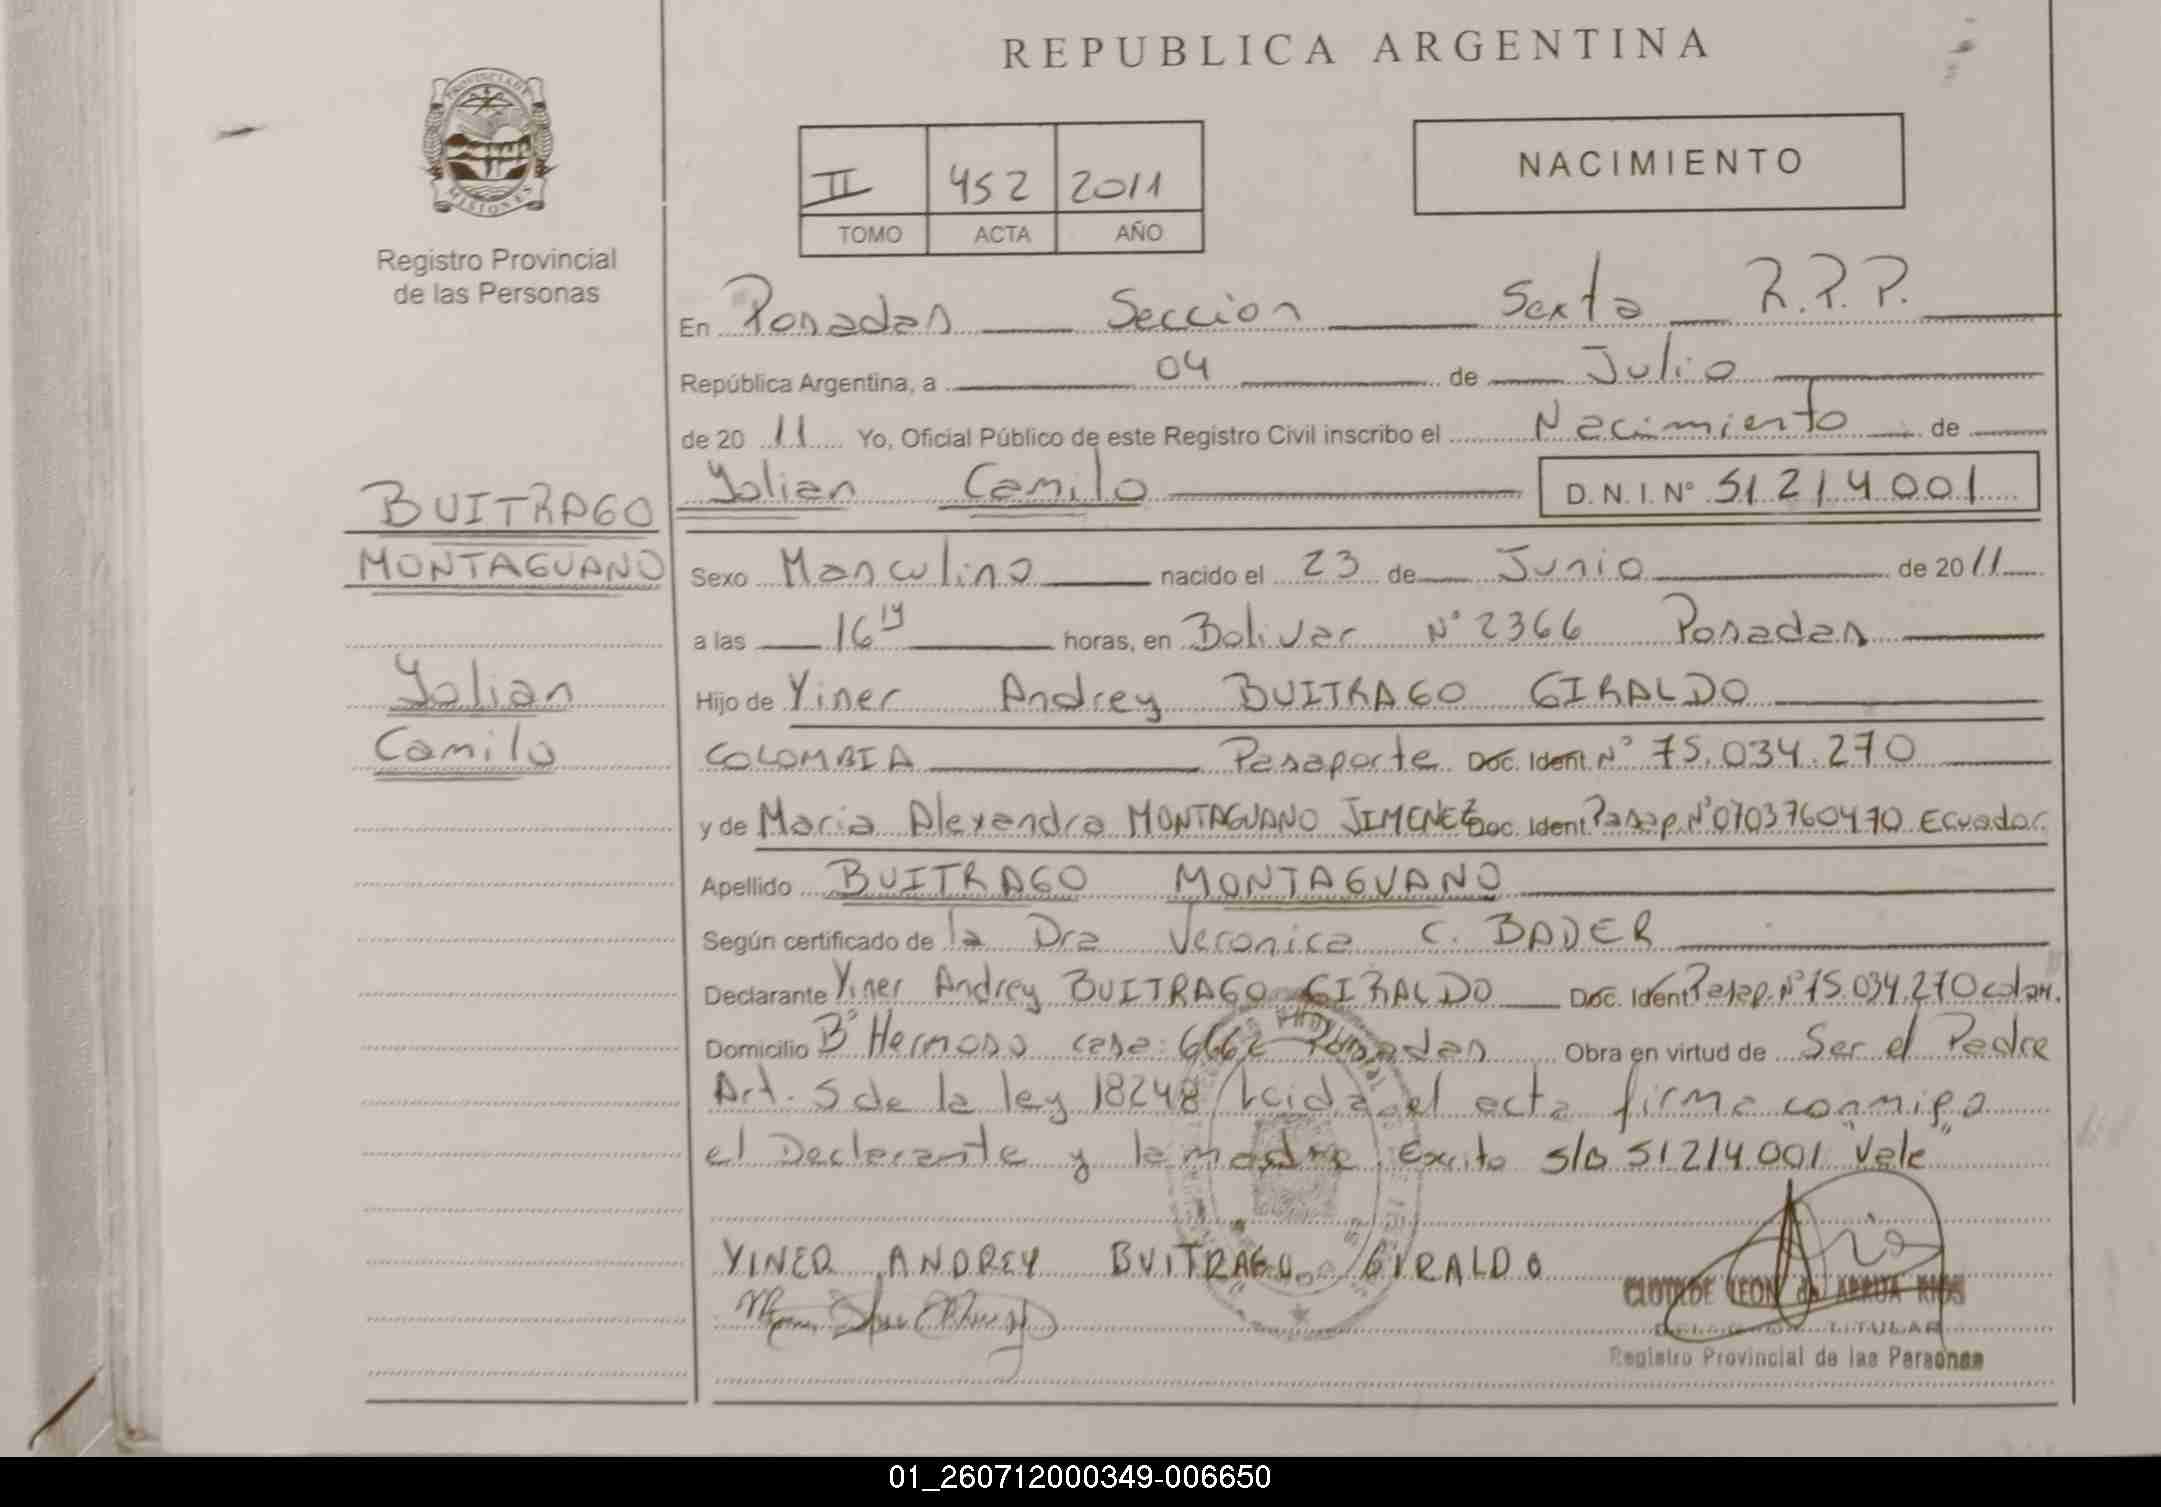 REPUBLICA ARGENTINA
PROVINCIA DE
MISIONES
Registro Provincial
de las Personas
II 452 2011
TOMO ACTA AÑO
NACIMIENTO
En Posadas Seccion Sexta R.P.P.
República Argentina, a 04 de Julio
de 2011 Yo, Oficial Público de este Registro Civil inscribo el Nacimiento de
Yolian Camilo D.N.I. Nº 51214001
BUITRAGO
MONTAGUANO
Yolian
Camilo
Sexo Masculino nacido el 23 de Junio de 2011
a las 16 19 horas, en Bolivar Nº 2366 Posadas
Hijo de Yiner Andrey BUITRAGO GIRALDO
COLOMBIA Pasaporte Doc. Ident. Nº 75.034.270
y de Maria Alexandra MONTAGUANO JIMENEZ Doc. Ident. Pasap. Nº 0703760470 Ecuador
Apellido BUITRAGO MONTAGUANO
Según certificado de la Dra Veronica C. BADER
Declarante Yiner Andrey BUITRAGO GIRALDO Doc. Ident. Pasap. Nº 75.034.270 colom.
Domicilio Bº Hermoso casa 6662 Posadas Obra en virtud de Ser el Padre
Art. 5 de la ley 18248/Leida el acta firma conmigo
el Declarante y la madre. Escrito s/b 51214.001 "Vale"
YINER ANDREY BUITRAGO GIRALDO
CLOTILDE LEON de ARRUA RIOS
TITULAR
Registro Provincial de las Personas
01_260712000349-006650